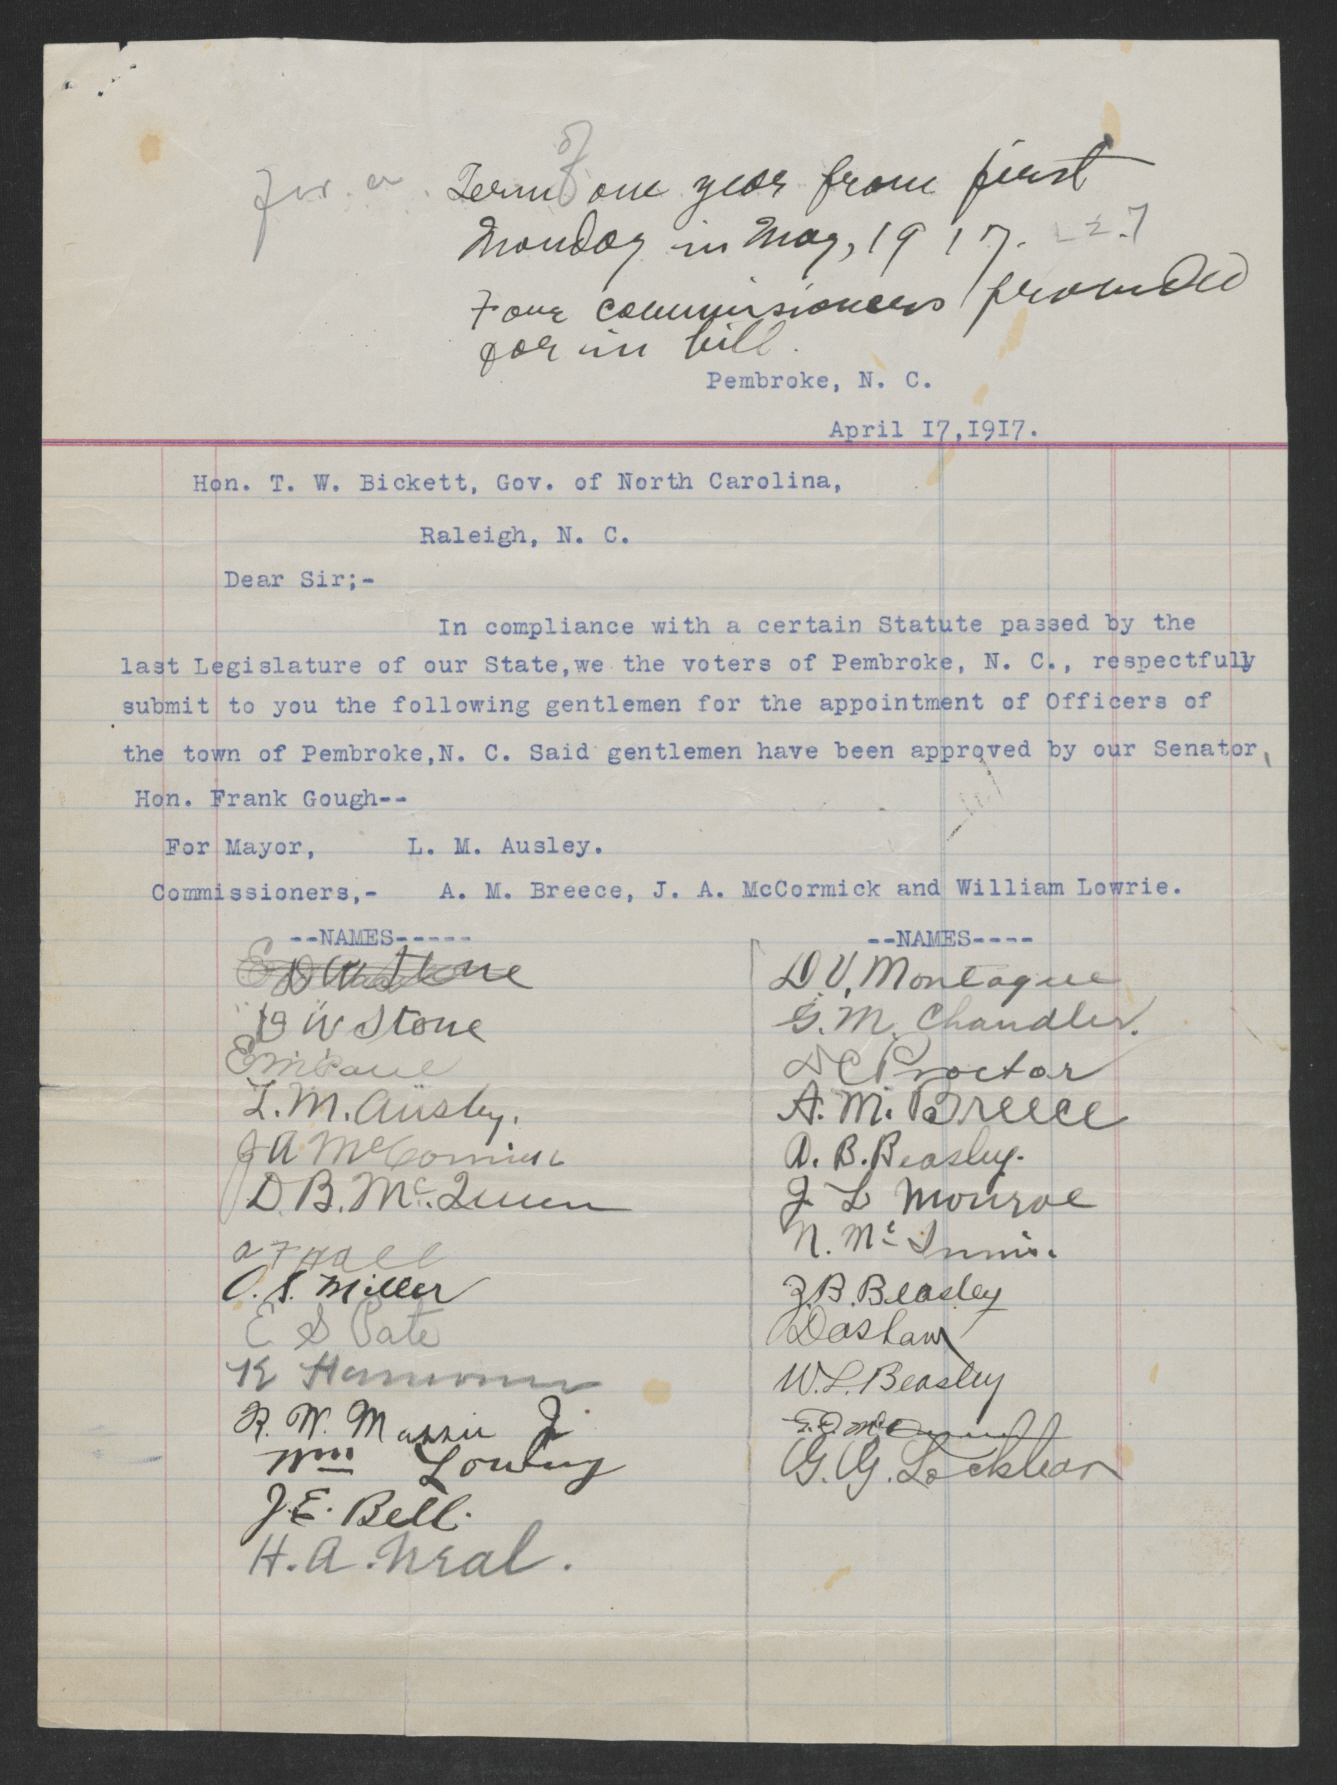 for a Term of one year from first
Monday in May, 1917.
Four commissioners provided
for in bill.
Pembroke, N. C.
April 17,1917.
Hon. T. W. Bickett, Gov. of North Carolina,
Raleigh, N. C.
Dear Sir;-
In compliance with a certain Statute passed by the
last Legislature of our State,we the voters of Pembroke, N. C., respectfully
submit to you the following gentlemen for the appointment of Officers of
the town of Pembroke,N. C. Said gentlemen have been approved by our Senator,
Hon. Frank Gough--
For Mayor, L. M. Ausley.
Commissioners,- A. M. Breece, J. A. McCormick and William Lowrie.
--NAMES-----
D W Stone
E M Paul
L. M. Ausley.
J A McCormick
D. B. Mc.Queen
A F Wall
O. S. Miller
E S Pate
R. W. Massie Jr.
Wm Lowry
J. E. Bell.
H. A. Neal.
--NAMES----
D V, Montague
G. M. Chandler.
D C Proctor
A. M. Breece
A. B. Beasley.
J L Monroe
N. Mc Innis.
Z. B. Beasley
W. L. Beasley
G. G. Locklear